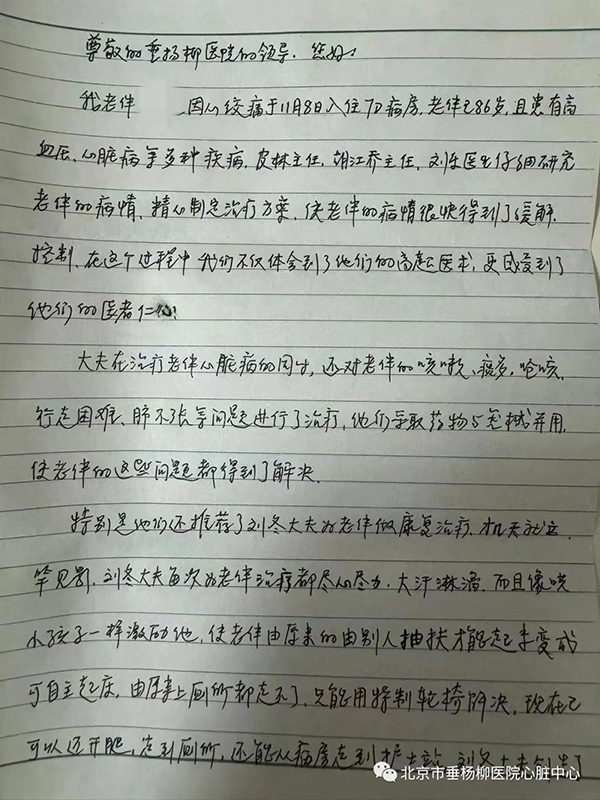 尊敬的垂杨柳医院的领导、您好:
我老伴 因心绞痛于11月8日入住7D病房,老伴已86岁,且患有高
血压、心脏病等多种疾病,皮林主任、胡江乔主任、刘乐医生仔细研究
老伴的病情,精心制定治疗方案,使老伴的病情很快得到了缓解、
控制,在这个过程中我们不仅体会到了他们的高超医术,更感受到了
他们的医者仁心!
大夫在治疗老伴心脏病的同时,还对老伴的咳嗽、痰多、呛咳、
行走困难、肺不张等问题进行了治疗,他们采取药物与器械并用,
使老伴的这些问题都得到了解决。
特别是他们还推荐了刘冬大夫为老伴做康复治疗,几天就立
竿见影,刘冬大夫每次为老伴治疗都尽心尽力,大汗淋漓,而且像哄
小孩子一样激励他,使老伴由原来的由别人抽扶才能起来变成
可自主起床,由原来上厕所都走不了,只能用特制轮椅解决,现在已
可以迈开腿,走到厕所,还能从病房走到护士站,刘冬大夫
北京市垂杨柳医院心脏中心